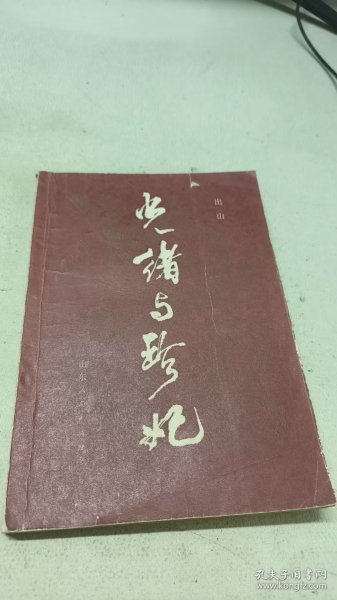 出山
光绪与珍妃
山东
孔夫子旧书网